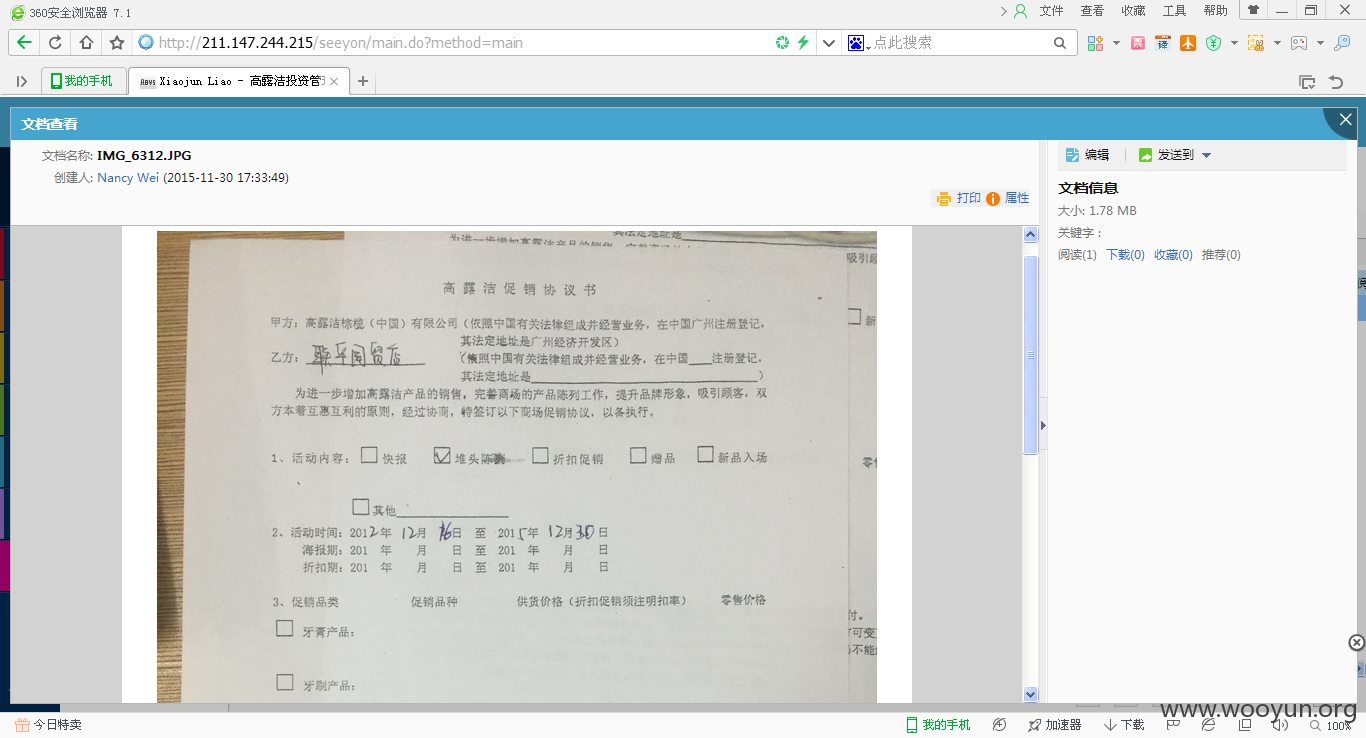 360安全浏览器 7.1
文件 查看 收藏 工具 帮助
http://211.147.244.215/seeyon/main.do?method=main
点此搜索
我的手机
Xiaojun Liao - 高露洁投资管
文档查看
文档名称: IMG_6312.JPG
创建人: Nancy Wei (2015-11-30 17:33:49)
打印 属性
编辑 发送到
文档信息
大小: 1.78 MB
关键字 :
阅读(1) 下载(0) 收藏(0) 推荐(0)
其法定地址是
吸引顾
高露洁促销协议书
甲方: 高露洁棕榄（中国）有限公司（依照中国有关法律组成并经营业务，在中国广州注册登记，
其法定地址是广州经济开发区）
新
乙方: 国贸店
（依照中国有关法律组成并经营业务，在中国____注册登记，
其法定地址是____）
为进一步增加高露洁产品的销售，完善商场的产品陈列工作，提升品牌形象，吸引顾客，双
方本着互惠互利的原则，经过协商，特签订以下商场促销协议，以备执行。
1、活动内容: 快报 堆头陈 折扣促销 赠品 新品入场
零售
其他
2、活动时间: 2012年 12月 16日 至 2015年 12月 30日
海报期: 201 年 月 日 至 201 年 月 日
折扣期: 201 年 月 日 至 201 年 月 日
3、促销品类 促销品种 供货价格（折扣促销须注明扣率） 零售价格
付。
牙膏产品:
可变
不能
牙刷产品:
www.wooyun.org
今日特卖
我的手机 加速器 下载 100%